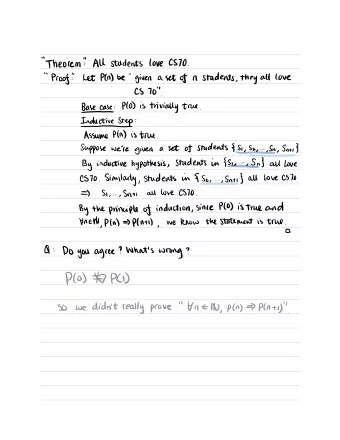 "Theorem": All students love CS70.
"Proof": Let P(n) be "given a set of n students, they all love
CS 70"
Base case: P(0) is trivially true.
Inductive Step:
Assume P(n) is true.
Suppose we're given a set of students {S₁, S₂, ..., Sₙ, Sₙ₊₁}.
By inductive hypothesis, students in {S₁, ..., Sₙ} all love
CS70. Similarly, students in {S₂, ..., Sₙ₊₁} all love CS70
⇒ S₁, ..., Sₙ₊₁ all love CS70.
By the principle of induction, since P(0) is true and
∀n∈ℕ, P(n) ⇒ P(n+1), we know the statement is true.
□
Q: Do you agree? What's wrong?
P(0) ⇏ P(1)
so we didn't really prove "∀n ∈ ℕ, P(n) ⇒ P(n+1)".